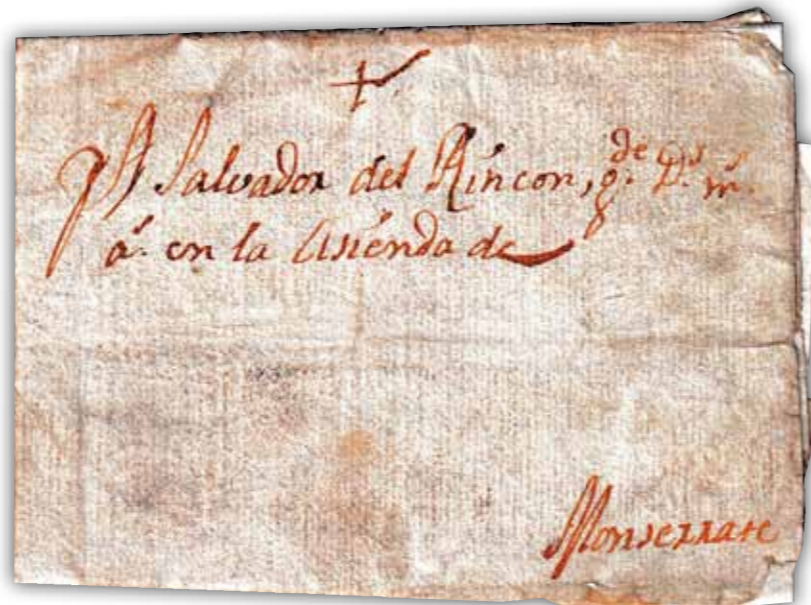 A Salvador del Rincon, g.de D.s m.s
a.s en la Asienda de
Monserrate